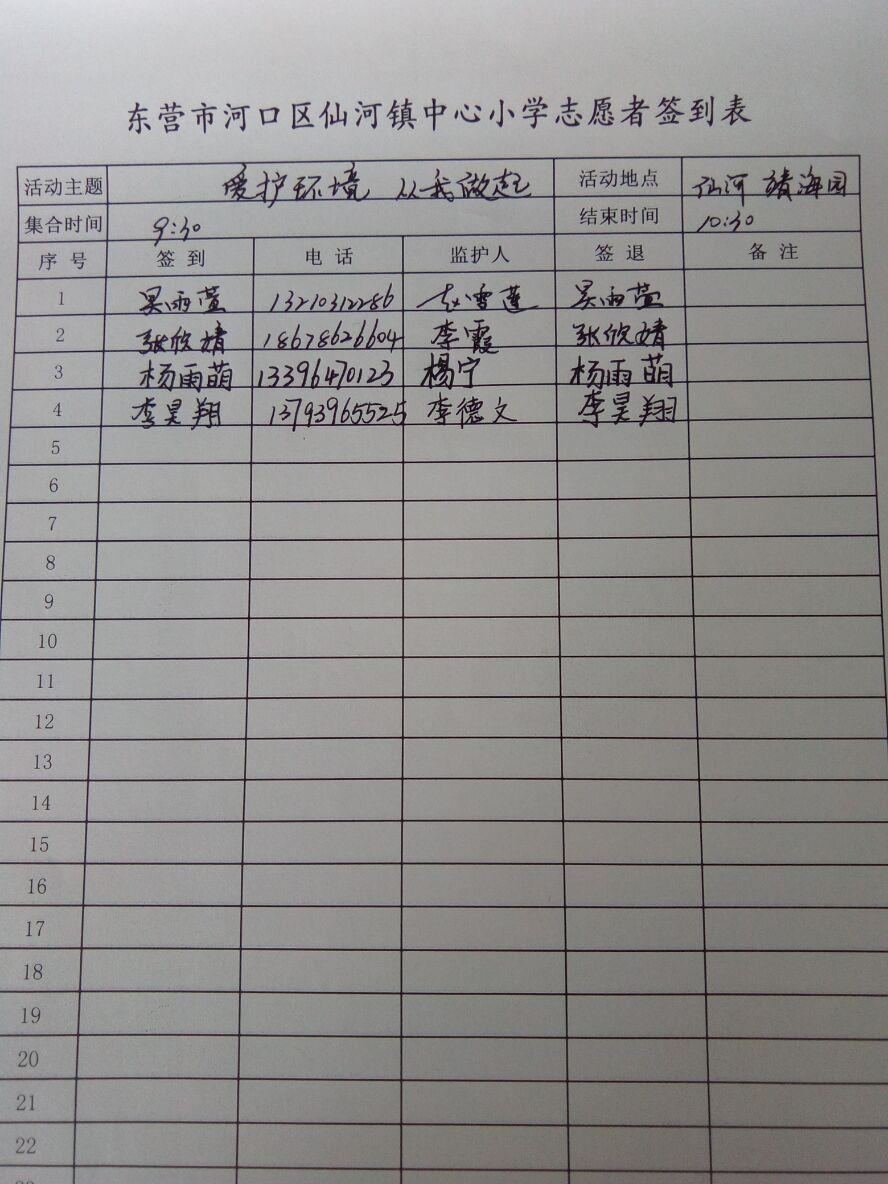 东营市河口区仙河镇中心小学志愿者签到表
活动主题 爱护环境 从我做起 活动地点 仙河 靖海园
集合时间 9:30 结束时间 10:30
序号 签到 电话 监护人 签退 备注
1 吴雨萱 13210312286 赵雪莲 吴雨萱
2 张欣婧 18678626604 李霞 张欣婧
3 杨雨萌 13396470123 杨宁 杨雨萌
4 李昊翔 13793965525 李德文 李昊翔
5
6
7
8
9
10
11
12
13
14
15
16
17
18
19
20
21
22